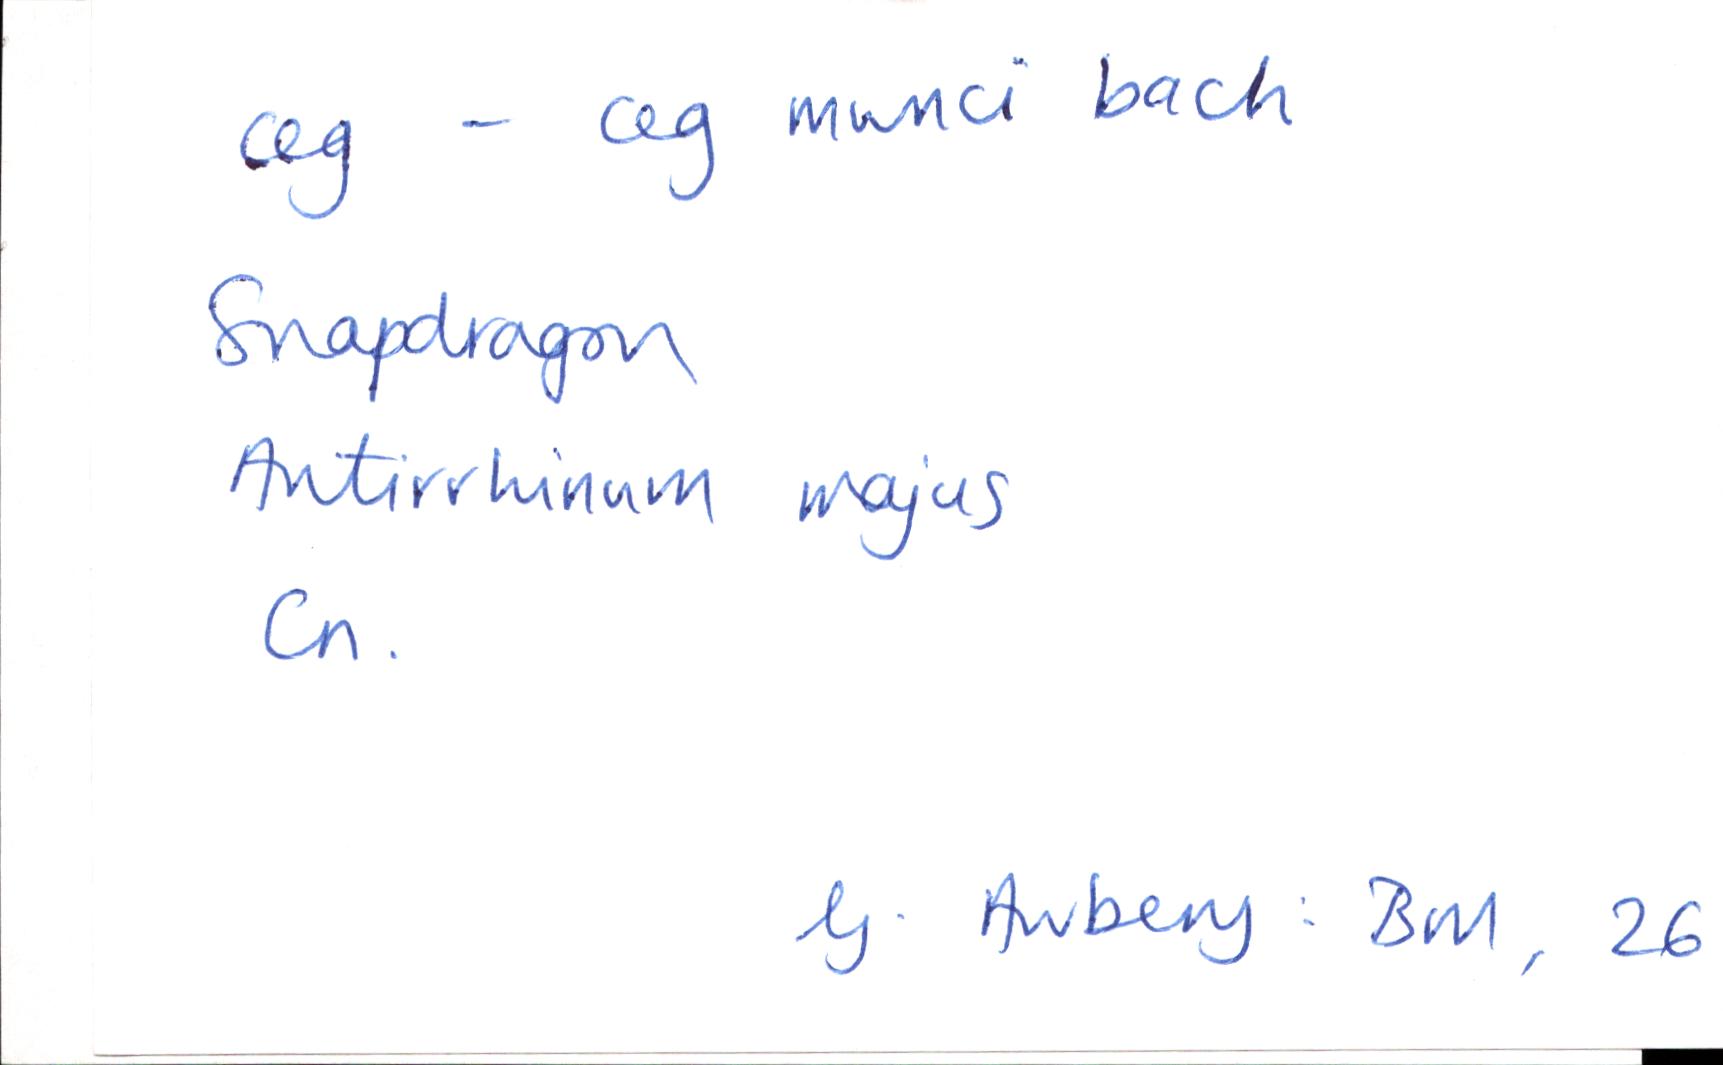 ceg - ceg mwnci bach
Snapdragon
Antirrhinum majus
Cn.
G. Awbery: BM, 26